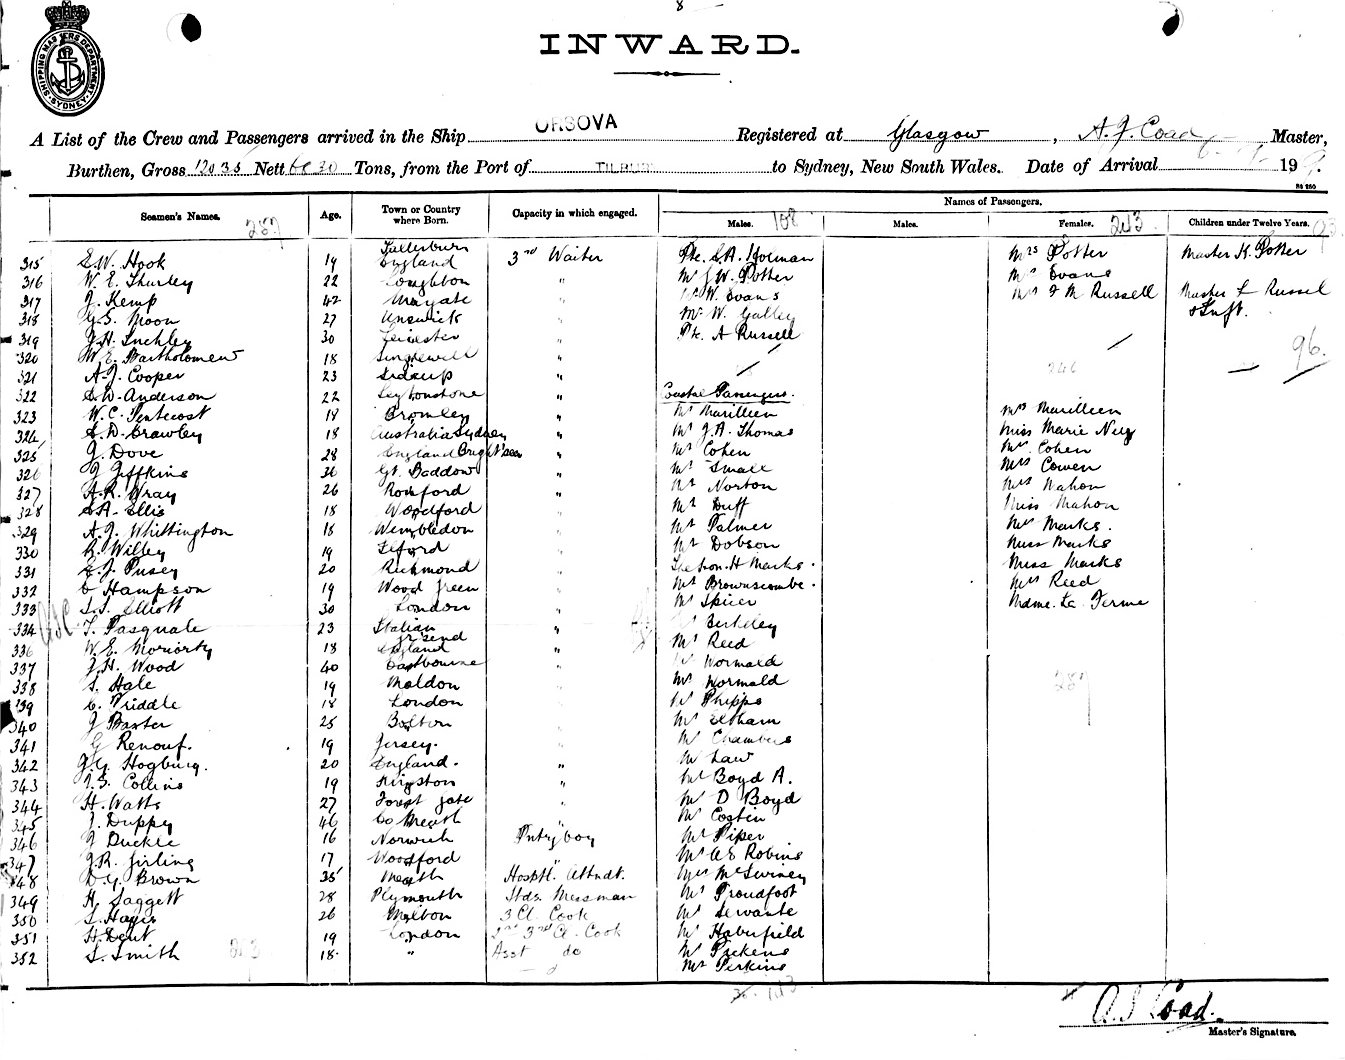 8
SHIPPING MASTERS DEPARTMENT
SYDNEY
INWARD.
A List of the Crew and Passengers arrived in the Ship ORSOVA Registered at Glasgow, A. J. Coad Master,
Burthen, Gross 12036 Nett 6830 Tons, from the Port of TILBURY to Sydney, New South Wales. Date of Arrival 19
Seamen's Names. Age. Town or Country where Born. Capacity in which engaged. Names of Passengers.
289 Males. 108 Males. Females. 243 Children under Twelve Years.
315 E.W. Hook 19 England 3rd Waiter Pte. S.A. Horman Mrs Potter Master K. Potter
316 W. E. Thurley 22 " Mr J.W. Potter Mrs Evans
317 J. Kemp 42 Margate " Mr W. Evans Mrs F M Russell Master L Russel
318 G.S. Moon 27 " Mr W. Galley & Inft.
319 J.H. Luchley 30 Leicester " Pte. A Russell
320 W.E. Bartholomew 18 Singlewell " 96.
321 A.J. Cooper 23 Sidcup " 246
322 S.W. Anderson 22 Leytonstone " Coastal Passengers.
323 W.C. Pentecost 18 Bromley " Mr Marilleen Mrs Marilleen
324 S.D. Crawley 18 Australia Sydney " Mr J.A. Thomas Miss Marie Ney
325 J. Dove 28 England " Mr Cohen Mrs Cohen
326 J Giffkins 36 Gt. Baddow " Mr Small Mrs Cowen
327 A.R. Wray 26 Romford " Mr Norton Mrs Mahon
328 S.A. Ellis 18 Woodford " Mr Duff Miss Mahon
329 A.J. Whittington 18 Wembledon " Mr Palmer Mrs Marks.
330 R. Willey 19 Ilford " Mr Dobson Miss Marks
331 E.J. Pusey 20 Richmond " The Hon. H Marks. Miss Marks
332 C Hampson 19 Wood Green " Mr Brownscombe. Mrs Reed
333 S.S. Elliott 30 London " Mr Spicer Mdme. La Ferme
334 T. Pasquale 23 Italian " Mr Berkley
336 W.E. Moriorty 18 England " Mr Reed
337 J.H. Wood 40 Eastbourne " Mr Wormald
338 S. Hale 19 Maldon Mrs Wormald 289
339 C. Priddle 18 London " Mr Phipps
340 J Baxter 25 Bolton " Mr Eltham
341 G Renouf. 19 Jersey. " Mr Chambers
342 J.G. Hogburg. 20 England. " Mr Law
343 T.S. Collins 19 Kingston " Mr Boyd A.
344 H. Watts 27 Forest Gate " Mr D Boyd
345 J. Duppy 46 Co Meath " Mr Costin
346 J Duckle 16 Norwich Pntryboy Mr Piper
347 J.R. Girling 17 Woodford " Mr A E Robins
348 D.G. Brown 35 Meath Hosptl. Attndt. Mrs McSwiney
349 H. Saggett 28 Plymouth Stds. Messman Mr Proudfoot
350 S. Hayes 26 Melton 3 Cl. Cook Mr Servante
351 H. Dent 19 London 3rd Cl. Cook Mr Haberfield
352 S. Smith 18 " Asst do Mr Pickens
Mr Perkins
A. J. Coad.
Master's Signature.